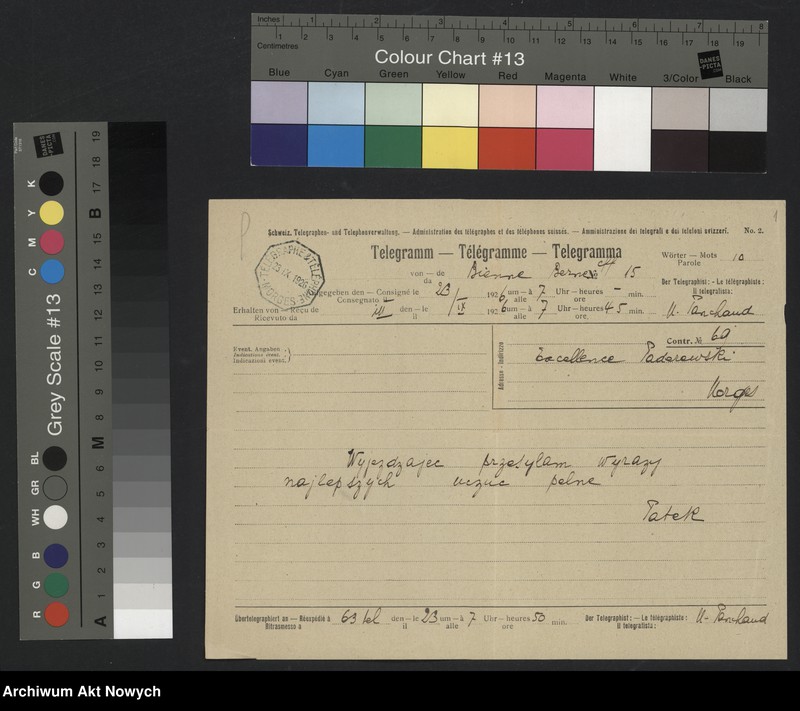 inches 1 2 3 4 5 6 7 8
Centimetres 1 2 3 4 5 6 7 8 9 10 11 12 13 14 15 16 17 18 19
Colour Chart #13
DANES-PICTA
Blue Cyan Green Yellow Red Magenta White 3/Color Black
Grey Scale #13
DANES-PICTA
R G B WH GR BL C M Y K
A 1 2 3 4 5 6 M 8 9 10 11 12 13 14 15 B 17 18 19
1
Schweiz. Telegraphen- und Telephonverwaltung. — Administration des télégraphes et des téléphones suisses. — Amministrazione dei telegrafi e dei telefoni svizzeri. No. 2.
Telegramm — Télégramme — Telegramma
Wörter — Mots 10
Parole
TÉLÉGRAPHE & TÉLÉPHONE
23 IX 1926
MORGES
von — de Bienne Berne 15
da
Der Telegraphist: - Le télégraphiste:
Il telegrafista:
gegeben den — Consigné le 23/IX 1926 um — à 7 Uhr — heures - min.
Consegnato il alle ore
Erhalten von — Reçu de III den — le 1926 um — à 7 Uhr — heures 45 min. U. Panchaud
Ricevuto da il alle ore
Event. Angaben
Indications évent.
Indicazioni event.
Adresse - Indirizzo
Contr. № 60
Excellence Paderewski
Morges
Wyjezdzajec przesylam wyrazy
najlepszych uczuc pelne
Patek
Übertelegraphiert an — Réexpédié à 63 tel den — le 23 um — à 7 Uhr — heures 50 min. Der Telegraphist: — Le télégraphiste: U. Panchaud
Ritrasmesso a il alle ore Il telegrafista:
Archiwum Akt Nowych